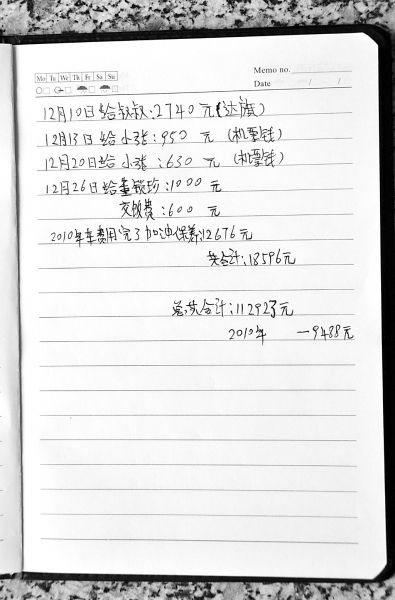 Mo Tu We Th Fr Sa Su
Memo no.
Date / /
12月10日给叔叔:2740元(达旗)
12月13日给小张:950元(机票钱)
12月20日给小张:630元(机票钱)
12月26日给董锁珍:1000元
交报费:600元
2010年车费用完了加油保养:12676元
共合计:18596元
总共合计:112923元
2010年 一9488元